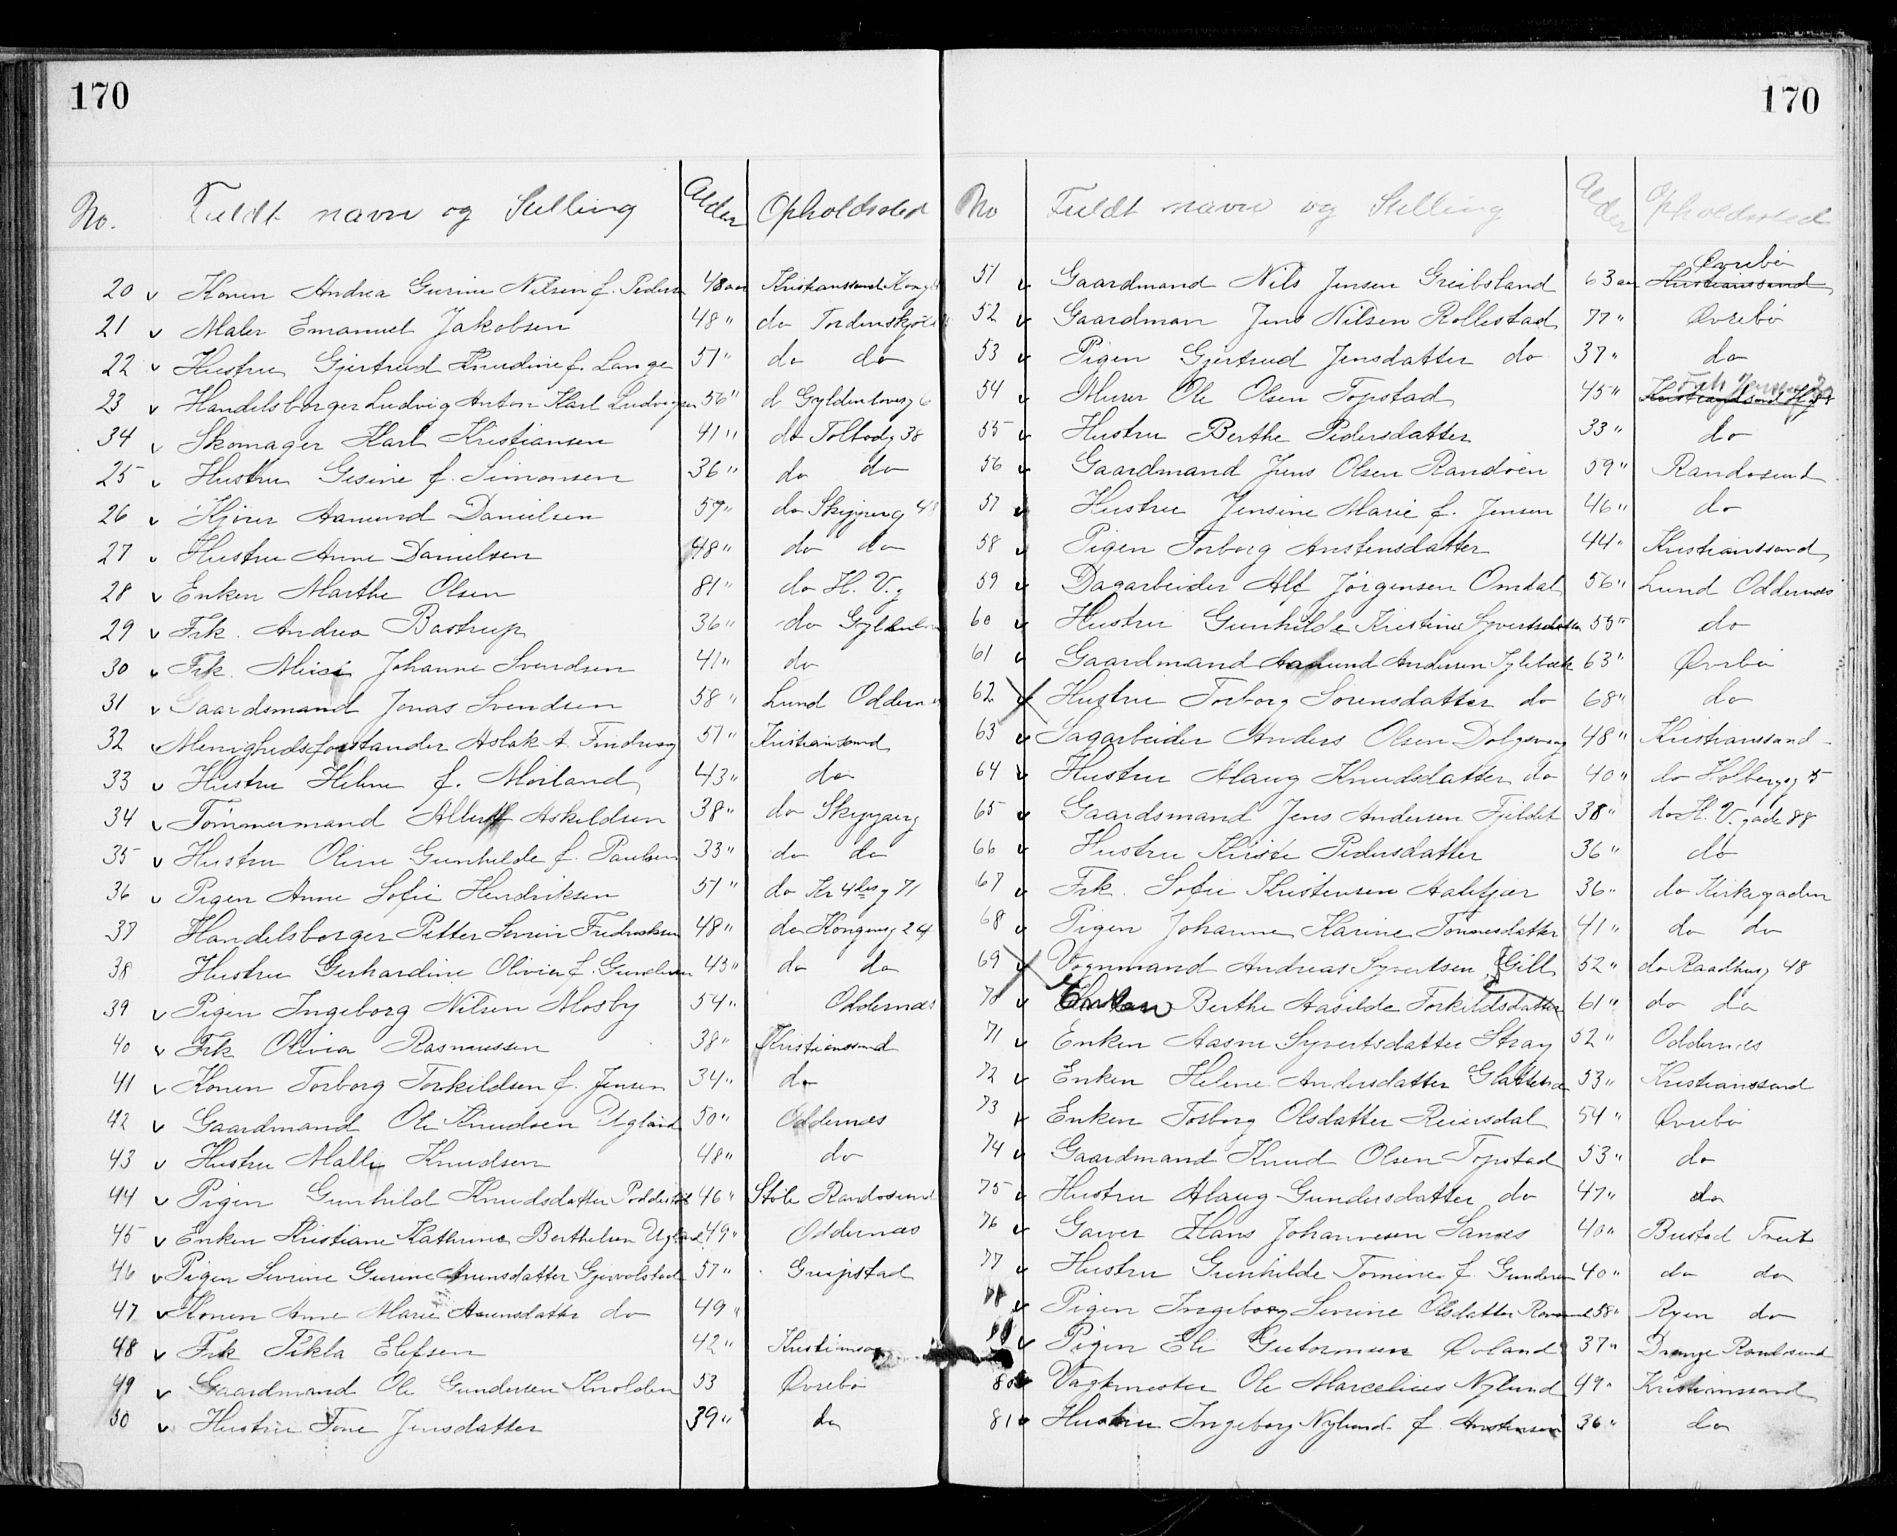 170
No. Fuldt navn og Stilling Alder Opholdssted
20 v Konen Andrea Gurine Nilsen f. Peders 48 aar Kristianssand Kong
21 v Maler Emanuel Jakobsen 48 " do Tordenskjold
22 v Hustru Gjertrud Knudine f. Lange 51 " do do
23 v Handelsborger Ludvig Anton Karl Ludvigsen 56 " d Gyldenlovesg 6
34 v Skomager Karl Kristiansen 41 " do Tolbodg 38
25 v Hustru Gesine f. Simonsen 36 " do do
26 v Kjører Aamund Danielsen 57 " do Skipperg
27 v Hustru Anne Danielsen 48 " do do
28 v Enken Marthe Olsen 81 " do H. V. g
29 v Frk. Andrea Bastrup 36 " do Gyldenlov
30 v Frk. Johanne Svendsen 41 " do
31 v Gaardsmand Jonas Svendsen 58 " Lund Oddernes
32 v Menighedsforstander Aslak A. 51 " Kristianssand
33 v Hustru Helene f. Moiland 43 " do
34 v Tømmermand Albert Askildsen 38 " do Skipperg
35 v Hustru Oline Gunhilde f. Paulsen 33 " do do
36 v Pigen Anne Sofie Hendriksen 51 " do Kr 4des g 71
37 Handelsborger Petter Severin Fredriksen 48 " do Kongensg 24
38 Hustru Gerhardine Olivia f. Gundersen 43 " do do
39 v Pigen Ingeborg Nilsen Mosby 54 " Oddernes
40 v Frk Olivia Rasmussen 38 " Kristianssand
41 v Konen Torborg Torkildsen f. Jensen 34 " do
42 v Gaardmand Ole Knudsen Ugland 50 " Oddernes
43 v Hustru Malli Knudsen 48 " do
44 v Pigen Gunhild Knudsdatter 46 " Støle Randosund
45 v Enken Kristiane Kathrine Berthelsen Ugland 49 " Oddernes
46 v Pigen Severine Gurine Aanensdatter Gjervolstad 57 " Greipstad
47 v Konen Anne Marie Aanensdatter do 49 "
48 v Frk Tekla Elefsen 42 " Kristianssa
49 v Gaardmand Ole Gundersen Knolden 53 Øvrebø
50 v Hustru Tone Jensdatter 39 " do
170
No Fuldt navn og Stilling Alder Opholdssted
Øvrebø
51 v Gaardmand Nils Jensen Greibsland 63 aar Kristianssand
52 v Gaardman Jens Nilsen Rollestad 77 " Øvrebø
53 v Pigen Gjertrud Jensdatter do 37 " do
54 v Murer Ole Olsen Topstad 45 " Kristianssand
55 v Hustru Berthe Pedersdatter 33 " do
56 v Gaardmand Jens Olsen Randøen 59 " Randosund
57 v Hustru Jensine Marie f. Jensen 46 " do
58 v Pigen Torborg Anstensdatter 44 " Kristianssand
59 v Dagarbeider Alf Jørgensen Omdal 56 " Lund Oddernes
60 v Hustru Gunhilde Kristine Syvertsdatter 55 " do
61 v Gaardmand Aamund Andersen 63 " Øvrbø
62 v Hustru Torborg Sorensdatter do 68 " do
63 v Sagarbeider Anders Olsen 48 " Kristianssand
64 v Hustru Alaug Knudsdatter do 40 " do Holbergsg 5
65 v Gaardsmand Jens Andersen Fjeldet 38 " do H. V. gade 88
66 v Hustru Kirste Pedersdatter 36 " do
67 v Frk. Sofie Kristensen 36 " do Kirkegaden
68 v Pigen Johanne Karine Tønnesdatter 41 " do do
69 v Vognmand Andreas Syvertsen, Gill 52 " do Raadhusg 48
70 v Enken Berthe Aasilde Torkildsdatter 61 " do do
71 v Enken Aasne Syvertsdatter Stray 52 " Oddernes
72 v Enken Helene Andersdatter 53 " Kristianssand
73 v Enken Torborg Olsdatter Reiersdal 54 " Øvrebø
74 v Gaardmand Knud Olsen Topstad 53 " do
75 v Hustru Alaug Gundersdatter do 47 " do
76 v Garver Hans Johannesen Sandes 40 " Bustad Treit
77 v Hustru Gunhilde Tomine f. Gundersen 40 " do do
78 v Pigen Ingeborg Severine Olsdatter 58 " Ryen do
v Pigen Eli Gutormsen Øvland 37 " Drange Randosund
80 Vagtmester Ole Marcelius Nylund 49 " Kristianssand
81 v Hustru Ingeborg Nylund f. Anstensen 36 " do